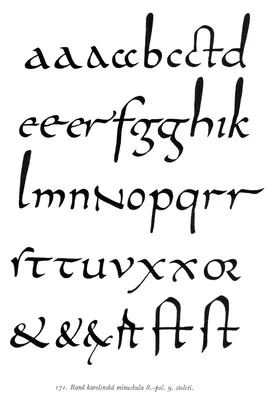 aaaccbcctd
eeerfgghik
lmnNopqrr
rττuvxxor
&&&ſtſtſt
171. Raná karolinská minuskula 8.–pol. 9. století.